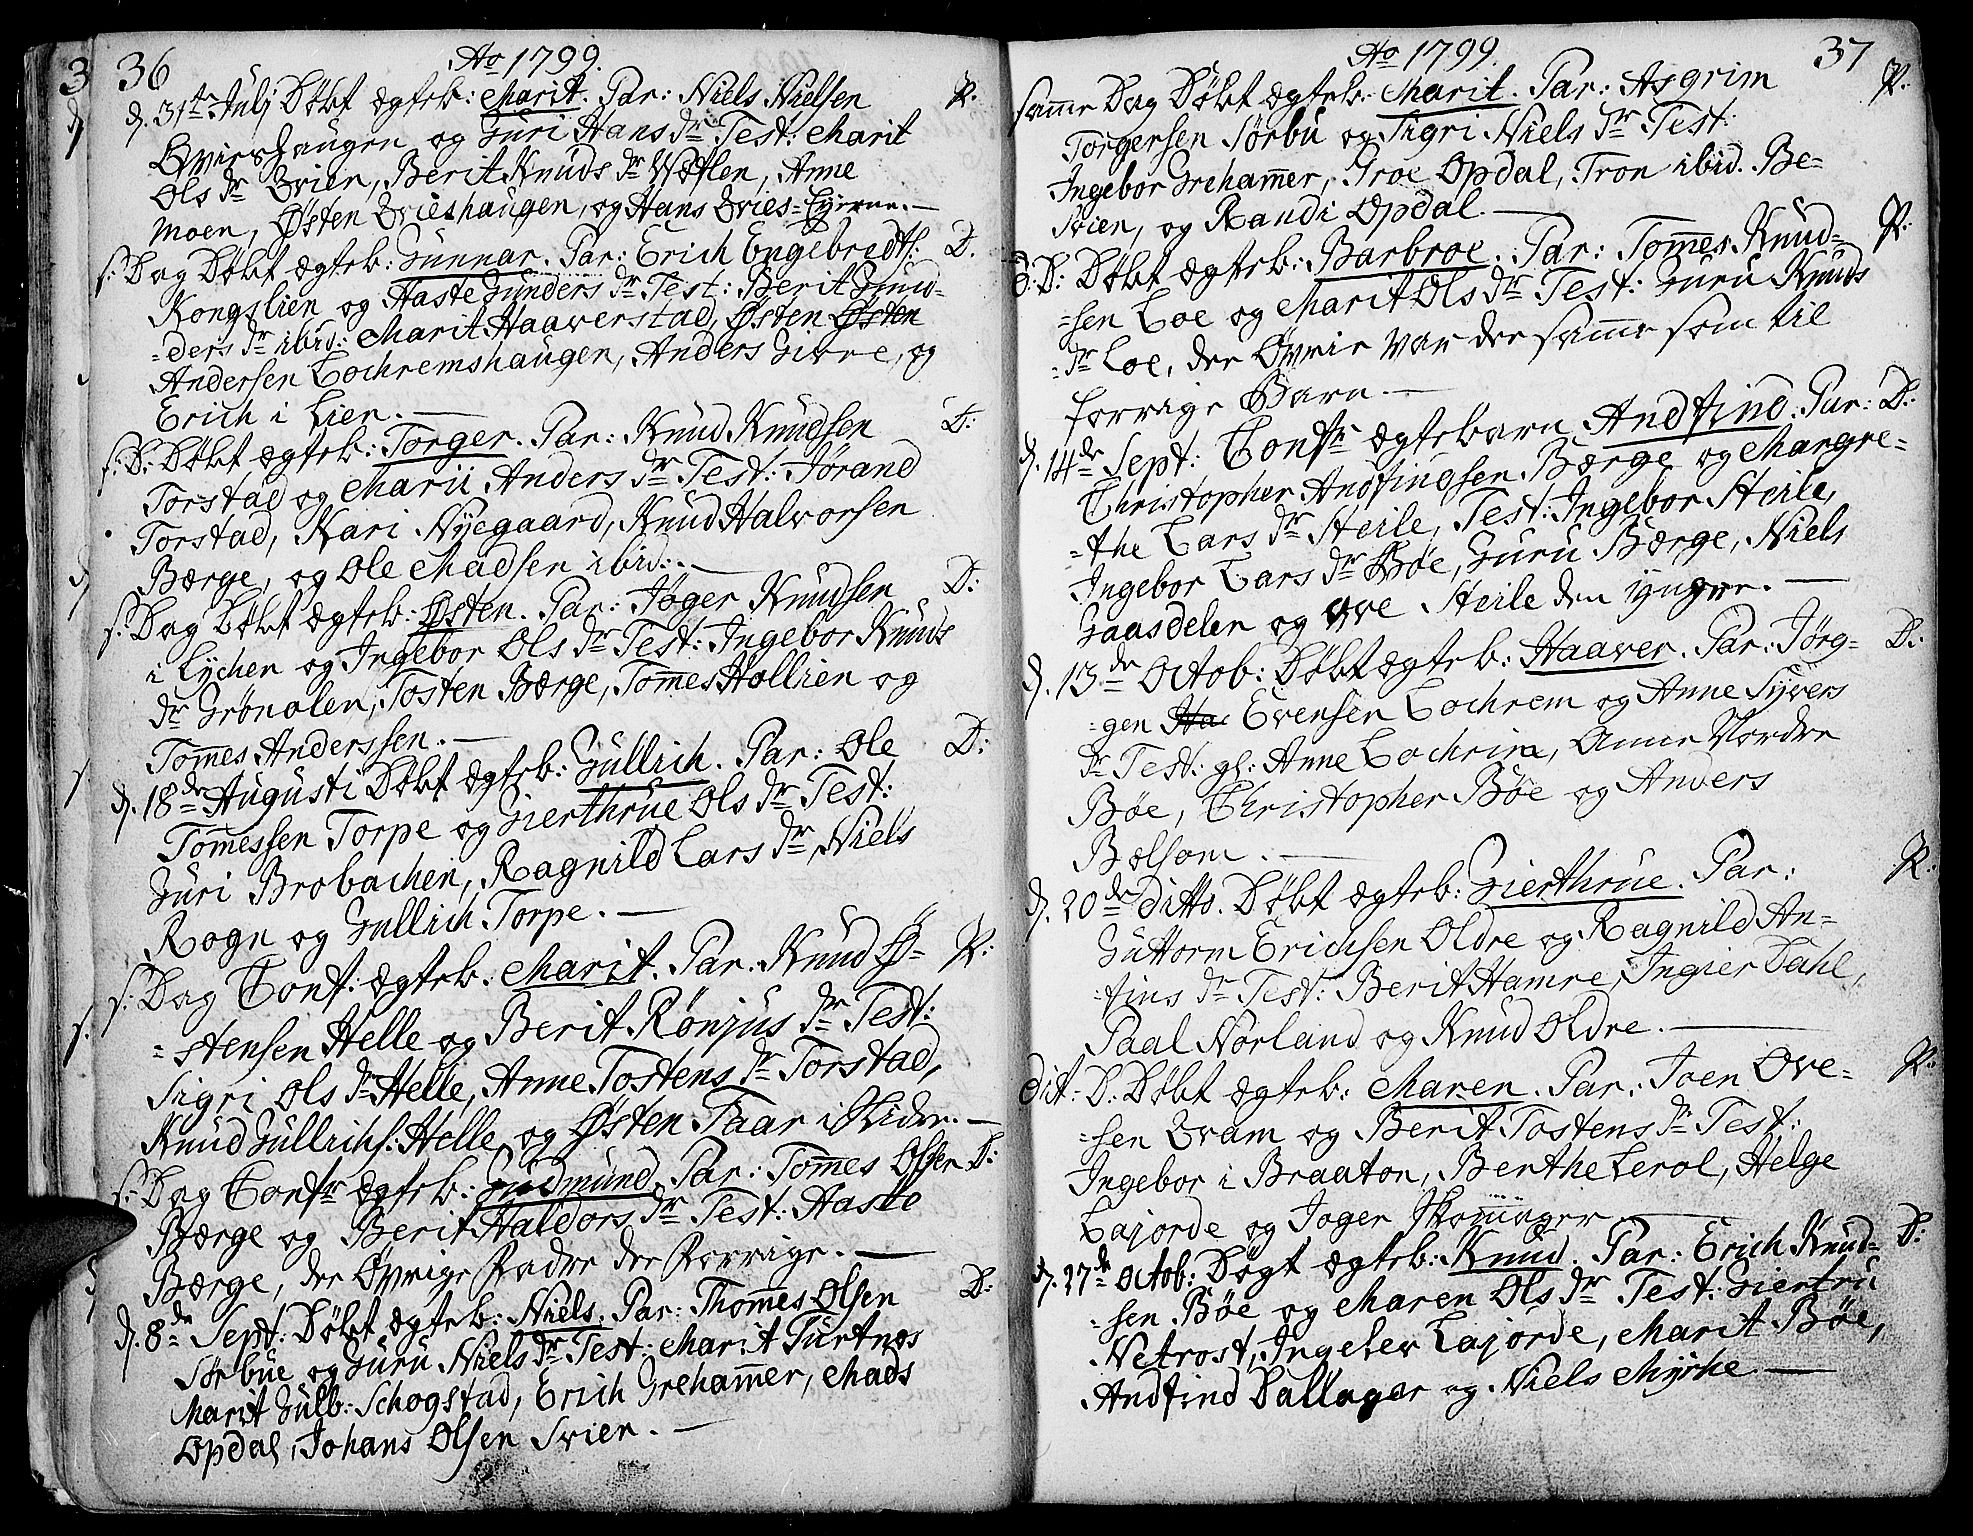 36 Ao 1799.
d. 31te Julj Døbt ægteb: Marit. Par: Niels Nielsen P.
Qvieshaugen og Guri Hans dr Test: Marit
Ols dr Qvien, Berit Knuds dr Anne
Moen, Østen Qvieshaugen, og Hans Qvies=
s: Dag Døbt ægteb: Gunnar. Par: Erich Engebredts: D.
Kongslien og Haste Gunders dr Test: Berit Gund-
=ders dr ibid: Marit Haaverstad, Østen Østen
Andersen Lochremshaugen, Anders og
Erich i Lien.
s: D: Døbt ægteb: Torger. Par: Knud Knudsen D:
Torstad og Marit Anders dr Test: Jørand
Torstad, Kari Nyegaard, Knud Halvorsen
Børge, og Ole Madsen ibid:
s: Dag Døbt ægteb: Østen. Par: Joger Knudsen D:
i Lychen og Ingebor Ols dr Test: Ingebor Knuds
dr Grønolen, Tosten Børge, Tom̄es Hollien og
Tom̄es Anderssen.
d. 18de Augusti Døbt ægteb: Gullich. Par: Ole D:
Tom̄essen Torpe og Gierthrue Ols dr Test:
Guri Brobachen, Ragnild Lars dr, Niels
Rogn og Gullich Torpe.
s: Dag Conf: ægteb: Marit. Par: Knud Ø- P:
=stensen Helle og Berit Rønjus dr Test:
Sigri Ols dr Helle, Anne Tostens dr Torstad,
Knud Gullichs: Helle og Østen Faar i Slidre.
s: Dag Confr ægteb: Gudmund. Par: Tom̄es Olsen D:
Børge og Berit Haldors dr Test: Haste
Børge, de Øvrige Fadre de Forrige.
d. 8de Sept: Døbt ægteb: Niels. Par: Thom̄es Olsen D:
Sørbue og Guru Niels dr Test: Marit Turtnæs
Marit Gulb: Schogstad, Erich Greham̄er, Mads
Opdal, Johans Olsen Svien.
Ao 1799. 37
samme Dag Døbt ægteb: Marit. Par: Asgrim P:
Torgersen Sørbu og Sigri Niels dr Test:
Ingebor Greham̄er, Groe Opdal, Tron ibid. Be-
Svien, og Randi Opdal.
s: D: Døbt ægteb: Barbroe. Par: Tom̄es Knud- P:
=sen Loe og Marit Ols dr Test: Guru Knuds
=dr Loe, de Øvrie var de samme som til
forrige Barn.
d. 14de Sept: Confr ægtebarn Andfind. Par: D:
Christopher Andfindsen Børge og Margre-
=the Lars dr Steile, Test: Ingebor Steile,
Ingebor Lars dr Bøe, Guru Børge, Niels
Gaasdelen og Ove Steile den yngre.
d. 13de Octob: Døbt ægteb: Haaver. Par: Jørg- D:
=gen Ha Evensen Lochrem og Anne Syvers
dr Test: gl: Anne Lochrim, Anne Nordre
Bøe, Christopher Bøe og Anders
Bælsom.
d. 20de ditto. Døbt ægteb: Gierthrue. Par: P:
Guttorm Erichsen Oldre og Ragnild An-
=fins dr Test: Berit Hamre, Ingier Dahl,
Paal Norland og Knud Oldre.
dit: D: Døbt ægteb: Maren. Par: Joen Ove- P:
=sen Qvam og Berit Tostens dr Test:
Ingebor i Braaton, Berthe Lerol, Helge
Lajorde og Joger
d. 27de Octob: Døgt ægteb: Knud. Par: Erich Knud- D:
=sen Bøe og Maren Ols dr Test: Giertru
Netrost, Ingeber Lajorde, Marit Bøe,
Andfind Dallager og Niels Myrhe